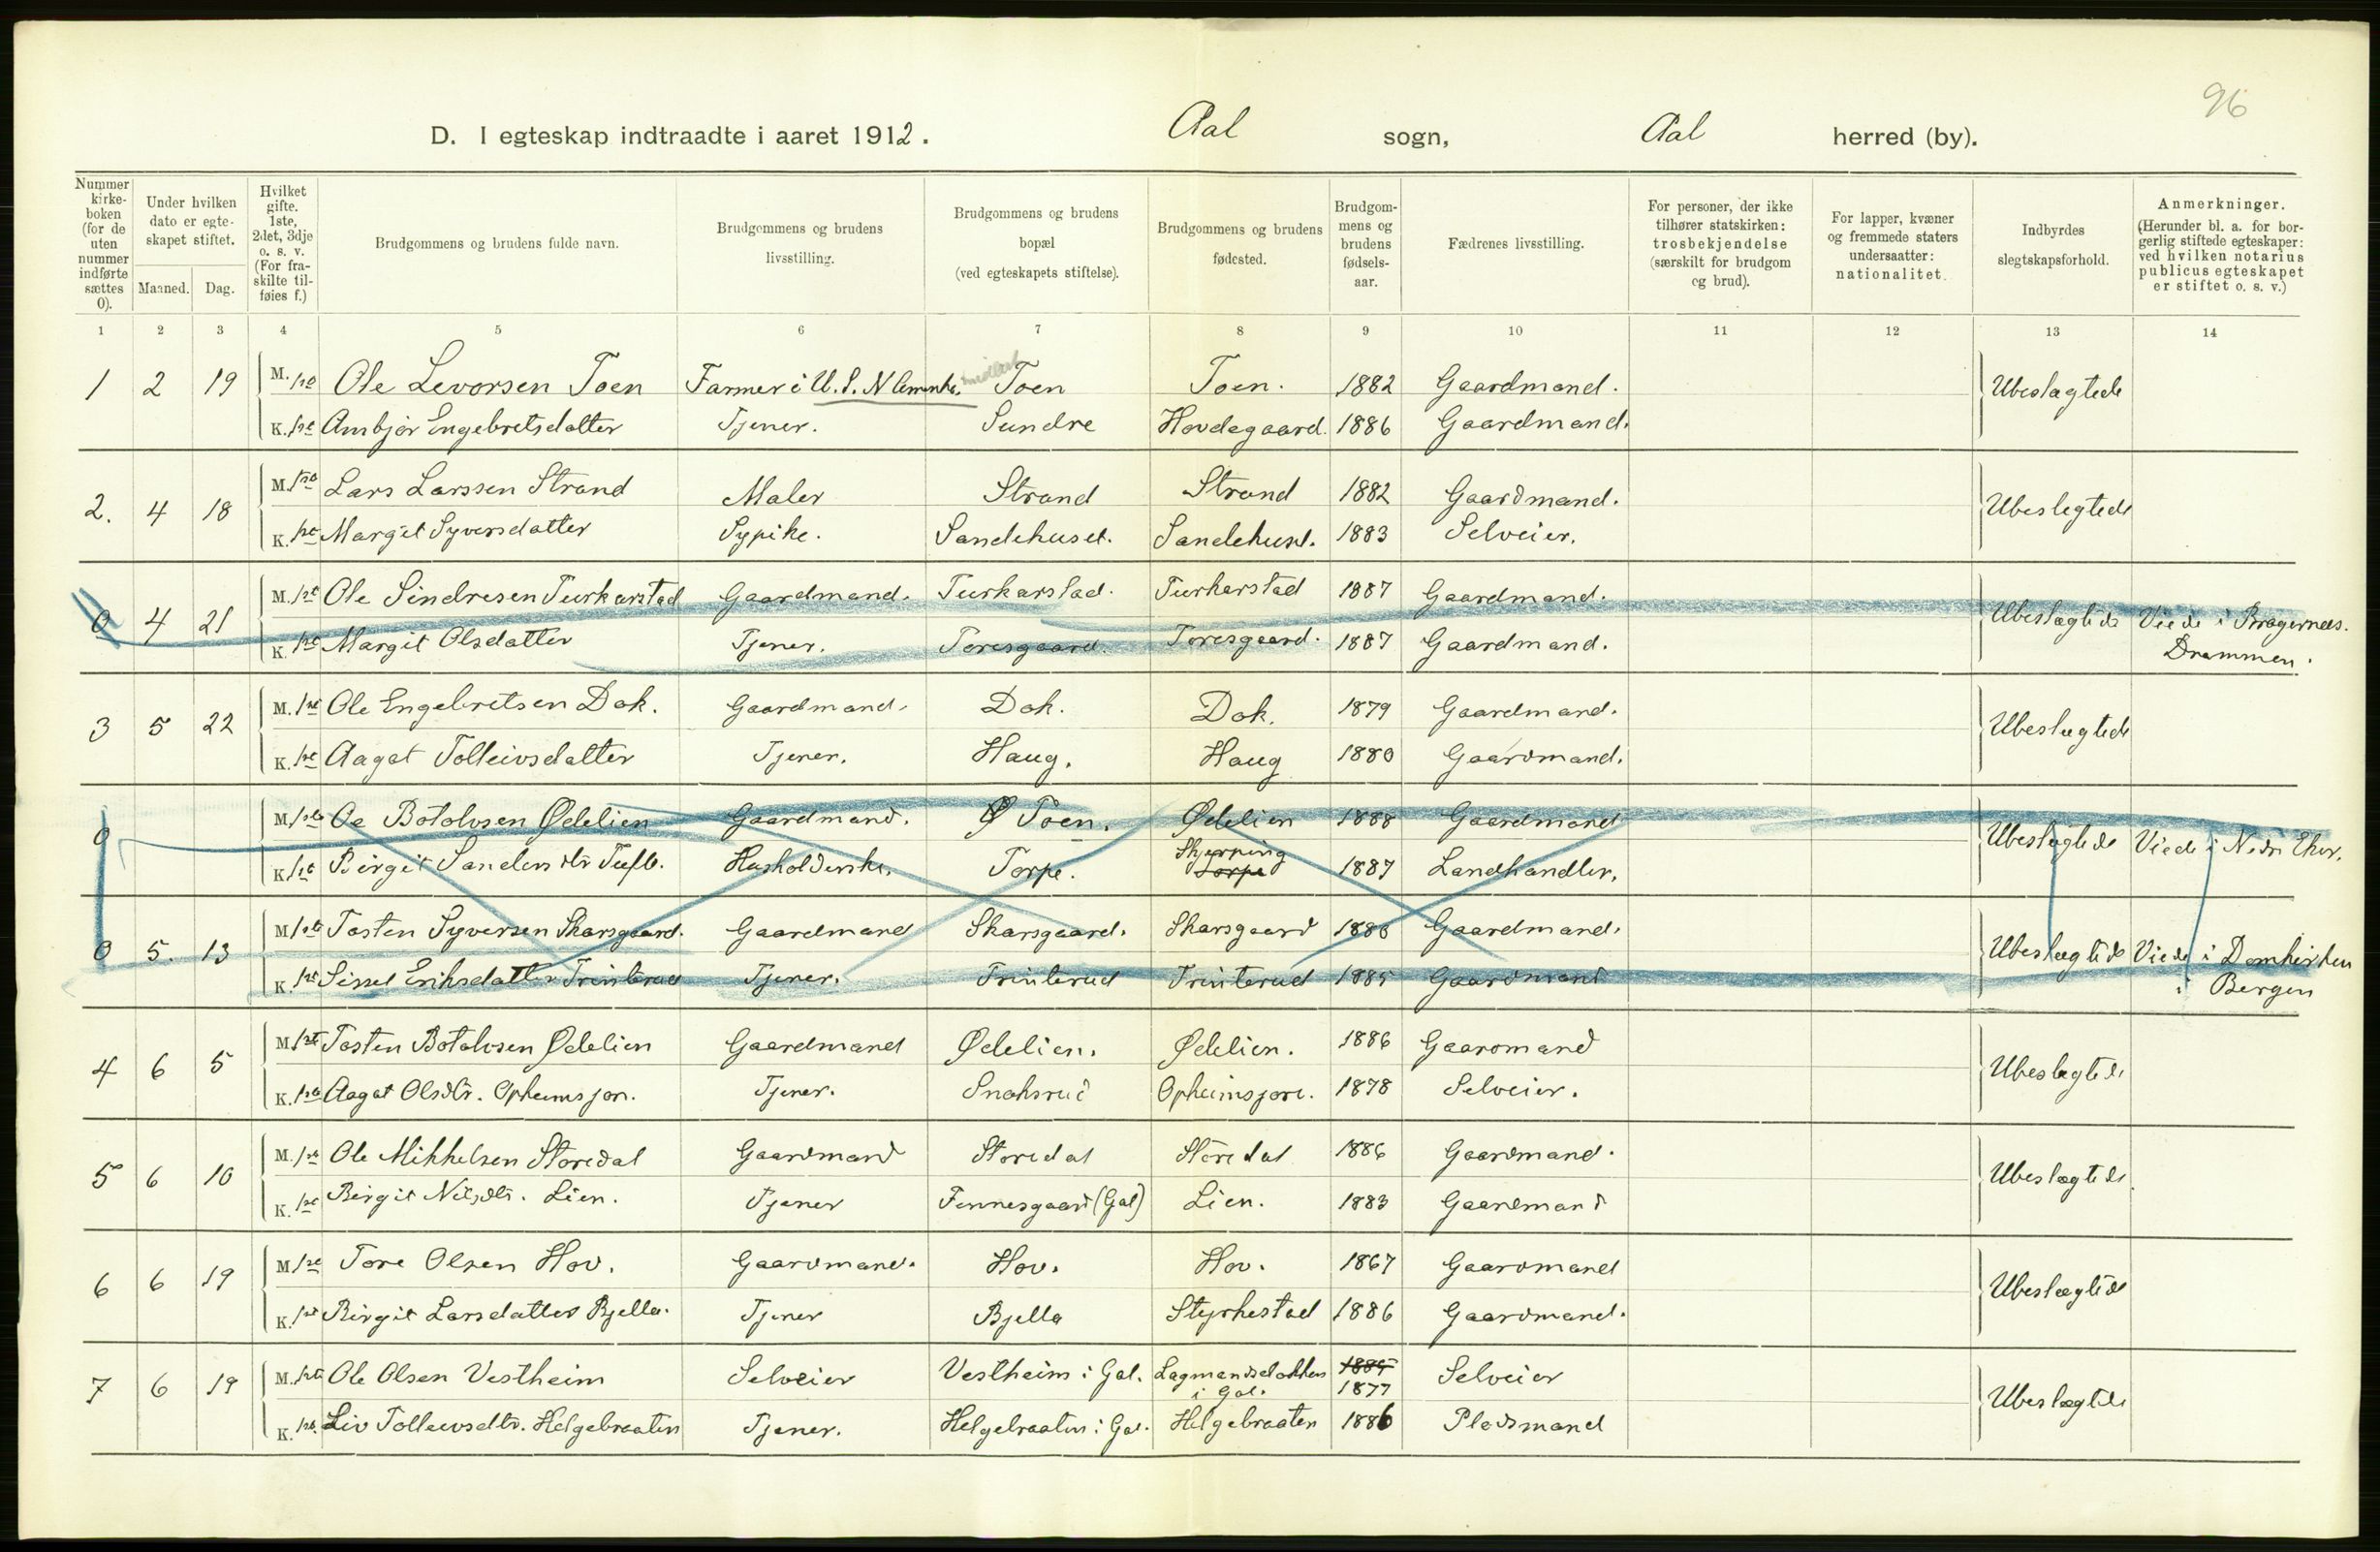 96
D. I egteskap indtraadte i aaret 1912. Aal sogn, Aal herred (by).
Nummer kirke-boken (for de uten nummer indførte sættes 0).
Under hvilken dato er egte-skapet stiftet.
Maaned. Dag.
Hvilket gifte. 1ste, 2det, 3dje o. s. v. (For fra-skilte til-føies f.)
Brudgommens og brudens fulde navn.
Brudgommens og brudens livsstilling.
Brudgommens og brudens bopæl (ved egteskapets stiftelse).
Brudgommens og brudens fødested.
Brudgom-mens og brudens fødsels-aar.
Fædrenes livsstilling.
For personer, der ikke tilhører statskirken: trosbekjendelse (særskilt for brudgom og brud).
For lapper, kvæner og fremmede staters undersaatter: nationalitet.
Indbyrdes slegtskapsforhold.
Anmerkninger. (Herunder bl. a. for bor-gerlig stiftede egteskaper: ved hvilken notarius publicus egteskapet er stiftet o. s. v.)
1 2 3 4 5 6 7 8 9 10 11 12 13 14
1 2 19 M. 1ste Ole Levorsen Toen Farmer i U.S. N Amerika. midlert Toen Toen. 1882 Gaardmand. Ubeslægtede
K. 1ste Ambjør Engebretsdatter Tjener. Sundre Hovdegaard. 1886 Gaardmand.
2. 4 18 M. 1ste Lars Larssen Strand Maler Strand Strand 1882 Gaardmand. Ubeslegtede
K. 1ste Margit Syversdatter Sypike. Sandehuset. Sandehuset. 1883 Selveier.
0 4 21 M. 1ste Ole Sindresen Turkarstad Gaardmand. Turkarstad. Turkarstad 1887 Gaardmand. Ubeslægtede Viede i Bragernæs.
K. 1ste Margit Olsdatter Tjener. Toresgaard. Toresgaard. 1887 Gaardmand. Drammen.
3 5 22 M. 1ste Ole Engebretsen Dok. Gaardmand. Dok. Dok. 1879 Gaardmand. Ubeslægtede
K. 1ste Aagot Tolleivsdatter Tjener. Haug. Haug 1880 Gaardmand.
0 M. 1ste Oe Botolvsen Ødelien Gaardmand. Ø Toen. Ødelien 1888 Gaardmand Ubeslægtede Viede i Nedre Eker.
K. 1ste Birgit Sanders dtr Tufto. Husholderske. Torpe. Skjerping Torpe 1887 Landhandler.
0 5. 13 M. 1ste Tosten Syversen Skarsgaard. Gaardmand Skarsgaard. Skarsgaard 1886 Gaardmand. Ubeslægtede Viede i Domkirken
K. 1ste Sissel Eriksdatter Trinterud Tjener. Trinterud Trinterud 1885 Gaardmand i Bergen
4 6 5 M. 1ste Tosten Botolvsen Ødelien Gaardmand Ødelien. Ødelien. 1886 Gaardmand Ubeslegtede
K. 1ste Aagot Olsdtr. Opheimsjor. Tjener. Snaksrud Opheimsjore. 1878 Selveier.
5 6 10 M. 1ste Ole Mikkelsen Storedal Gaardmand Storedal Storedal 1886 Gaardmand. Ubeslægtede
K. 1ste Birgit Nilsdtr. Lien. Tjener Finnesgaard (Gol) Lien. 1883 Gaardmand
6 6 19 M. 1ste Tore Olsen Hov. Gaardmand. Hov. Hov. 1867 Gaardmand Ubeslægtede
K. 1ste Birgit Larsdatter Bjella. Tjener Bjella Styrkestad 1886 Gaardmand.
7 6 19 M. 1ste Ole Olsen Vestheim Selveier Vestheim i Gol. Lagmandsdokken i Gol. 1885 1877 Selveier Ubeslægtede
K. 1ste Liv Tolleivsdtr. Helgebraaten Tjener. Helgebraaten i Gol. Helgebraaten 1886 Pladsmand